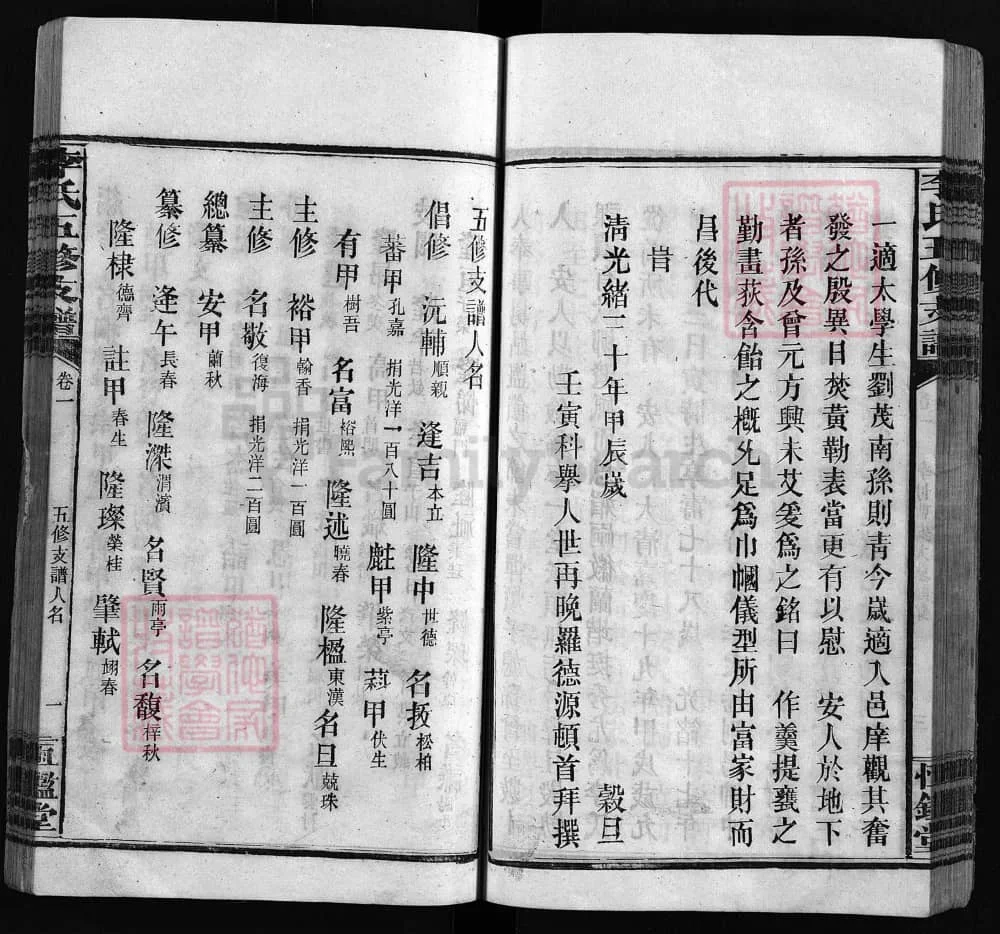 一適太學生劉茂南孫則青今歲適入邑庠觀其奮
發之殷異日焚黃勒表當更有以慰 安人於地下
者孫及曾元方興未艾爰爲之銘曰 作羹提甕之
勤畫荻含飴之槪夗足爲巾幗儀型所由富家財而
昌後代
旹
淸光緒三十年甲辰歲 穀旦
壬寅科舉人世再晚羅德源頓首拜撰
五修支譜人名
倡修 沅輔順親 逢吉本立 隆申世德 名扳松柏
蕃甲孔嘉 捐光洋一百八十圓 甡甲紫亭 甲伏生
有甲樹吾 名富裕熙 隆述曉春 隆楹東漢 名旦兢珠
主修 裕甲翰香 捐光洋一百圓
主修 名敬復海 捐光洋二百圓
總纂 安甲蘭秋
纂修 逢午長春 隆滐渭濱 名賢雨亭 名馥梓秋
隆棣德齊 註甲春生 隆璨榮桂 肇軾翊春
李氏五修支譜
卷一
五修支譜人名
一
鑑堂
familysearch